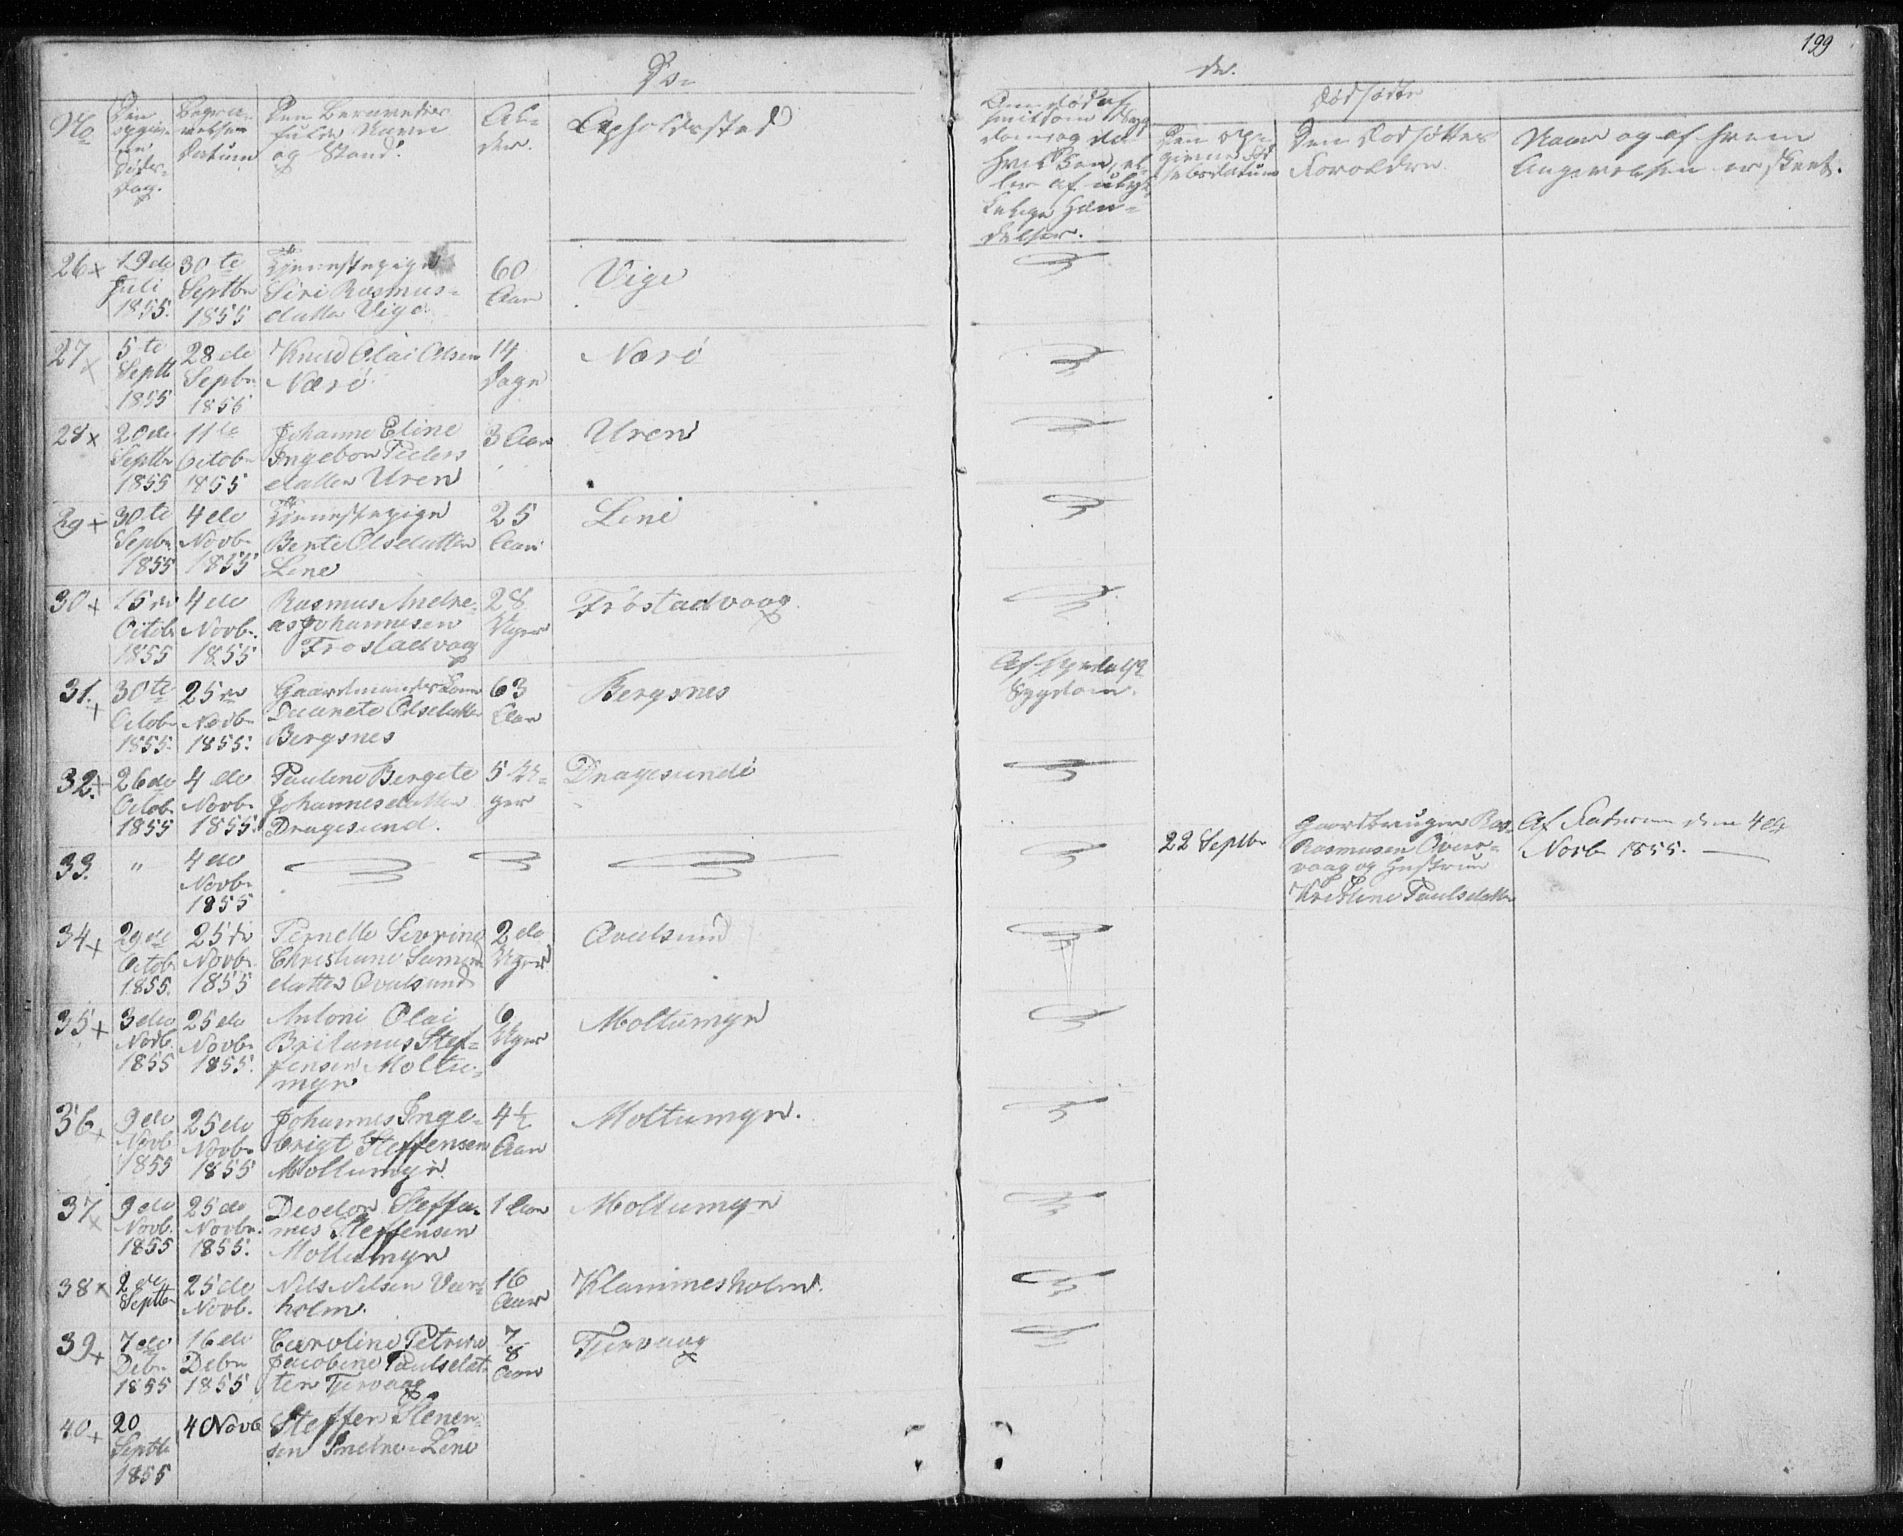 199
Dö=
de.
No
Den
opgiv=
ne
Döds=
Dag.
Begra=
velses
Datum
Den Begravedes
fulde Navn
og Stand.
Al=
der.
Opholdssted
Om död af
smitsom Syg
dom og da
hvilken, el=
ler af ulyk=
kelige Hæn=
delser.
Dödfödte
Den op=
givne Föd
selsdatum
Den Dödfödtes
Forældre
Naar og af hvem
Angivelsen er skeet.
26 x
19de
Juli
1855.
30te
Septbr
1855
Tjenestepige
Siri Rasmus=
datter Vige
60
Aar
Vige
27 x
5te
Septb
1855
28de
Sepbr
1855
Knud Olai Olsen
Nærö
14
Dage
Nærö
28 x
20de
Septbr
1855
11te
Octobr
1855
Johanne Eline
Ingebor Peders
datter Uren
3 Aar
Uren
29 +
30te
Sepbr
1855
4de
Novbr
1855
Tjenestepige
Berte Olsdatter
Leine
25
Aar
Leine
30 +
15de
Octob
1855
4de
Novbr.
1855
Rasmus Andre=
as Johannesen
Fröstadvaag
28
Uger
Fröstadvaag.
31. +
30te
Octob
1855.
25de
Novbr
1855.
Gaardmands Kone
Olsdatter
Bergsnes
63
Aar
Bergsnes
Sygdom.
32. +
26de
Octob.
1855
4de
Novbr
1855.
Pauline Bergete
Johannesdatter
Dragesund.
5 U=
ger
Dragesund
33.
"
4de
Novbr
1855
22 Septbr
Gaardbruger Ras.
Rasmusen Över=
vaag og Hustrue
Kristine Paulsdatter
Af Faderen den 4de
Novb 1855.
34 +
29de
Octob
1855.
25de
Novbr.
1855
Pernelle Sevrine
Christiane
datter Qvalsund
2de
Uger
Qvalsund
35 +
3die
Novb.
1855
25de
Novbr
1855.
Antoni Olai
Stef=
fensen Moltu=
myr
6
Uger
Moltumyr
36 +
9de
Novb.
1855
25de
Novbr
1855
Johannes Inge=
brigt Steffensen
Moltumyr.
4½
Aar
Moltumyr.
37 x
9de
Novb.
1855
25de
Novbr.
1855.
Steffa=
nus Steffensen
Moltumyr
1 Aar
Moltumyr
38 x
2de
Septbr
25de
Novb.
Nils Nilsen Vær=
holm.
16
Aar
Klammesholm.
39 +
7de
Debr.
1855
16de
Debr
1855
Caroline Petrine
Jacobine Paulsdat=
ter Tjervaag
7/8
Aar
Tjervaag
40 +
20
Septbr
1855
4 Novb
Steffen Stenen=
sen Leine